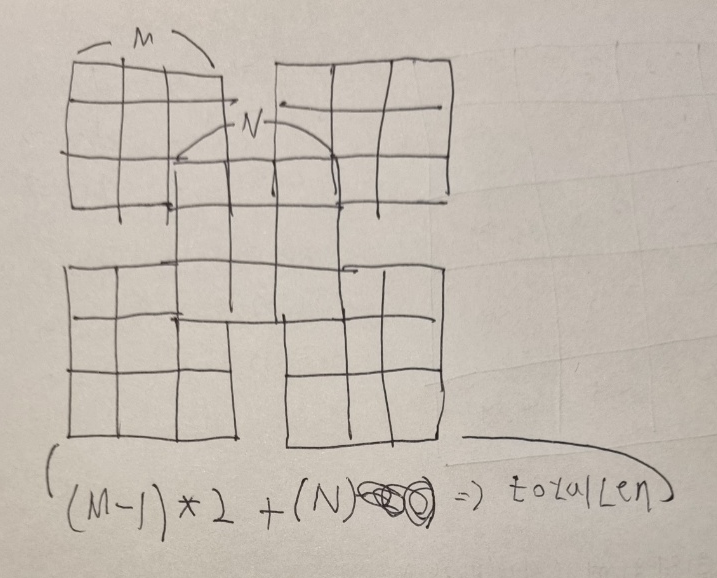 M
N
(M-1)*2+(N) => totalLen